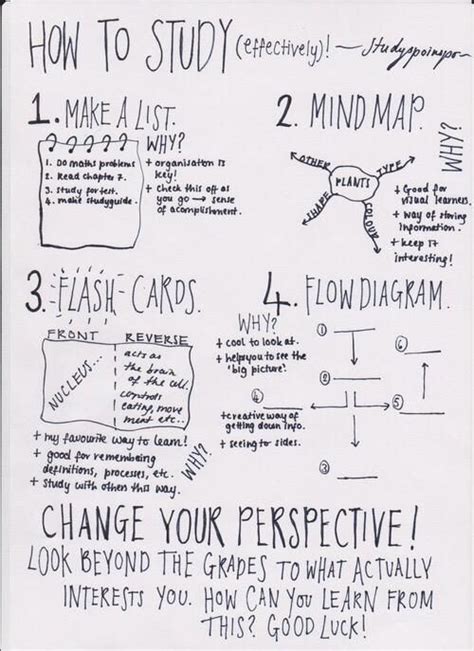 HOW TO STUDY (effectively)! — studyspoinspo —
1. MAKE A LIST.
WHY?
1. Do maths problems
2. Read chapter 7.
3. Study for test.
4. make studyguide.
+ organisation is
key!
+ check this off as
you go → sense
of acomplishment.
2. MIND MAP.
WHY?
OTHER
TYPE
PLANTS
SHAPE
COLOUR
+ Good for
visual learners.
+ way of storing
information.
+ keep it
interesting!
3. FLASH CARDS.
FRONT
REVERSE
NUCLEUS...
acts as
the brain
of the cell.
controls
eating, move
ment etc..
WHY?
+ my favourite way to learn!
+ good for remembeing
definitions, processes, etc.
+ study with others this way.
4. FLOW DIAGRAM.
WHY?
+ cool to look at.
+ helps you to see the
'big picture'.
+ creative way of
getting down info.
+ seeing to sides.
1
2
3
4
5
6
CHANGE YOUR PERSPECTIVE!
LOOK BEYOND THE GRADES TO WHAT ACTUALLY
INTERESTS YOU. HOW CAN YOU LEARN FROM
THIS? GOOD LUCK!